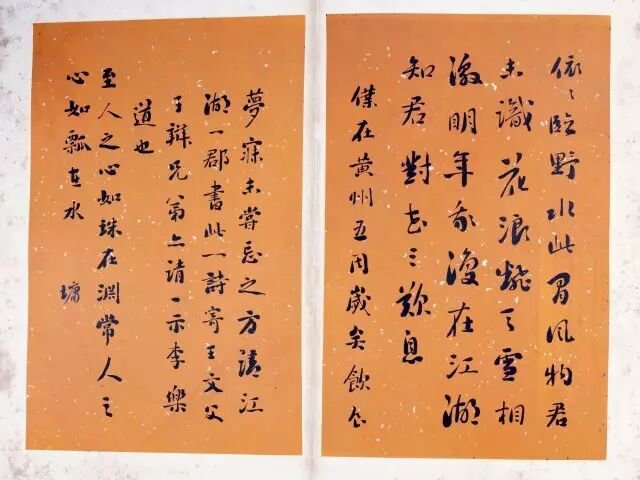 依依臨野水此間風物君
未識花浪翻天雪相
激明年我復在江湖
知君對花三歎息
僕在黃州五周歲矣飲食
夢寐未嘗忘之方請江
湖一郡書此一詩寄王文父
子辯兄弟亦請一示李樂
道也
至人之心如珠在淵常人之
心如瓢在水
墉